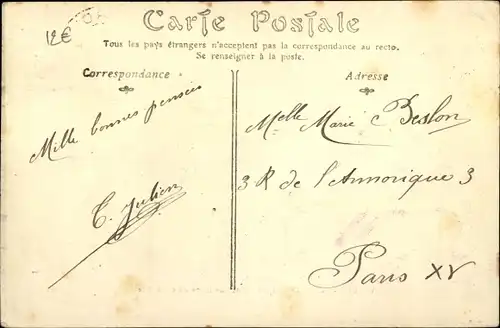 12€
Carte Postale
Tous les pays étrangers n'acceptent pas la correspondance au recto.
Se renseigner à la poste.
Correspondance
Mille bonnes pensées
C. Julien
Adresse
Melle Marie Beslon
3 R de l'Armorique 3
Paris XV